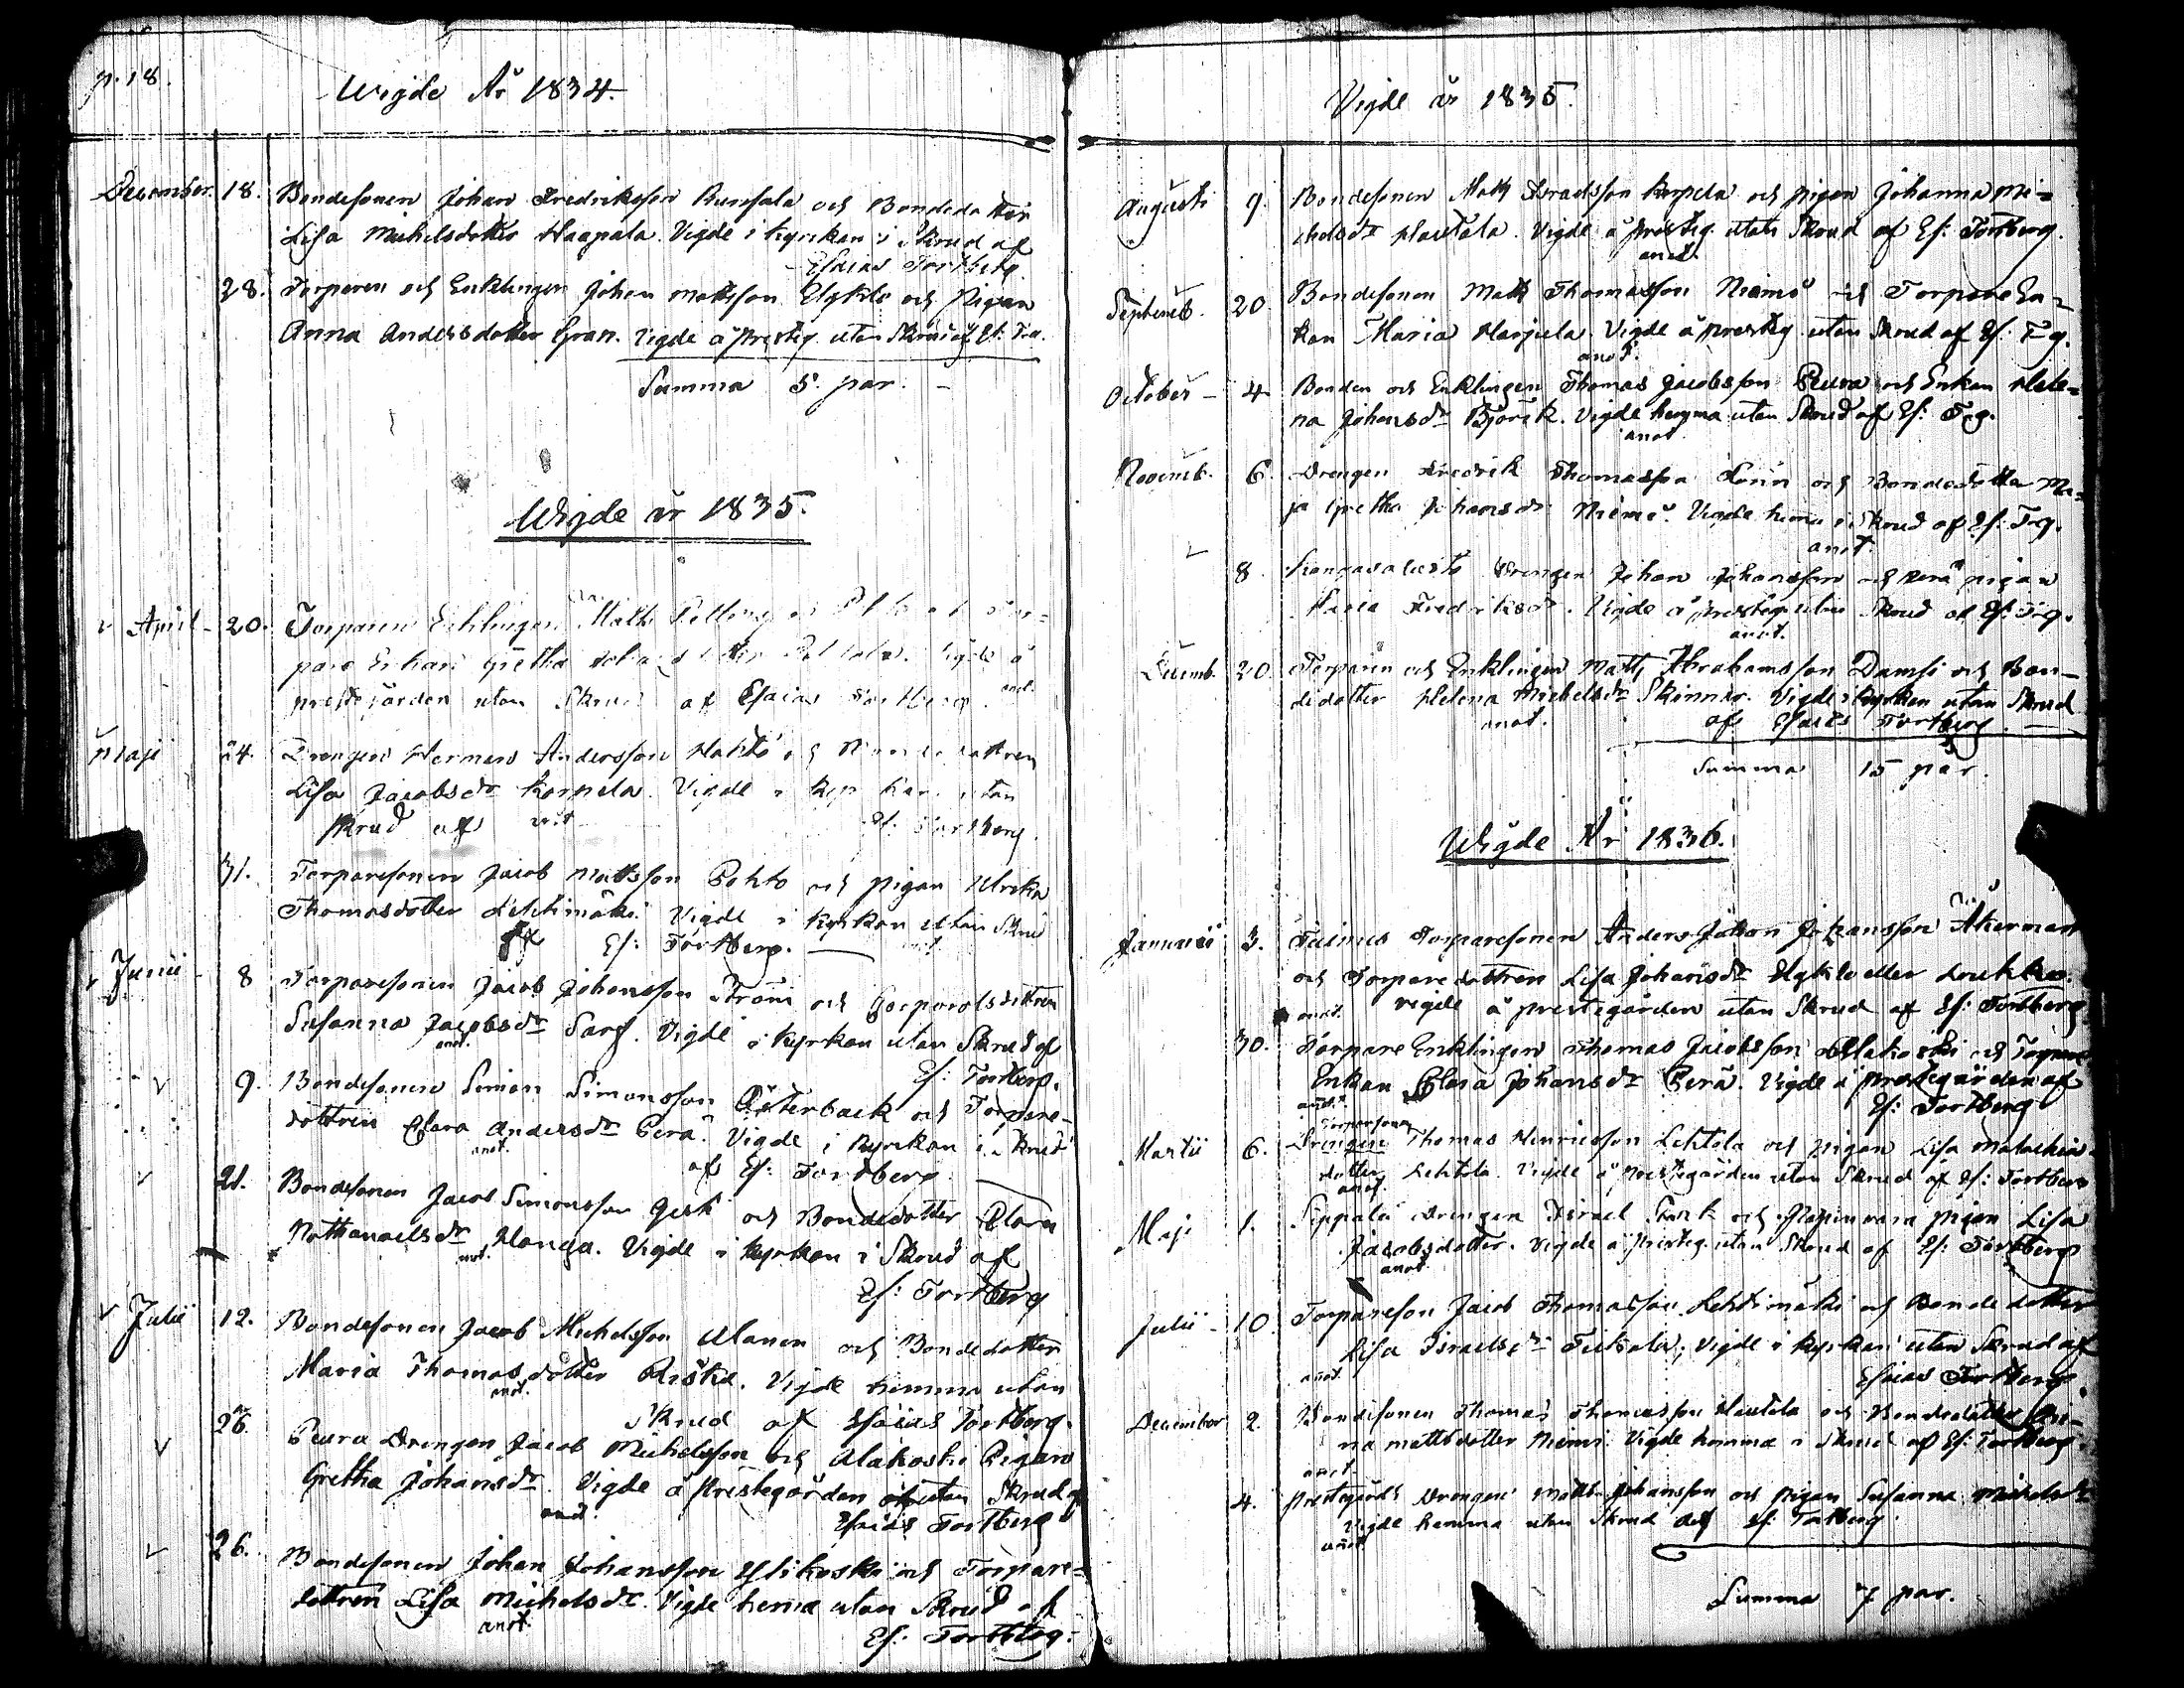 p. 18.
Wigde År 1834.
December. 18. Bondesonen Johan Fredriksson Runsala och Bondedotter
Lisa Michelsdotter Haapala. Vigde i kyrkan i Skrud af
Esaias Fortberg.
28. Torparen och Enklingen Johan Mattsson Elgkilo och Pigan
Anna Andersdotter Gran. Vigde å prestg. utan Skrud af Es:
Summa 5. par.
Wigde år 1835.
April 20. Torparen Enklingen Matts
pare Enkan Gretha Vigde å
prestegården utan Skrud af Esaias Fortberg. anot.
Maji 24. Drengen Herman Andersson Hahto och
Lisa Jacobsdr Korpela. Vigde i kyrkan utan
skrud af Es: Fortberg.
31. Torparesonen Jacob Mattsson Pohto och pigan Ulrika
Thomasdotter Lehtimäki Vigde i kyrkan utan Skrud
af Es: Fortberg.
Junii 8 Torparesonen Jacob Johansson Ström och Corporalsdottren
Susanna Jacobsdr Sarf. Vigde i kyrkan utan Skrud af
anot. Es: Fortberg.
9. Bondesonen Simon Simonsson Österback och Torpare-
dottren Clara Andersdr Perä. Vigde i kyrkan i Skrud
anot. af Es: Fortberg
21. Bondesonen Jacob Simonsson Gesk och Bondedotter Clara
Nathanaelsdr Hanga. Vigde i kyrkan i Skrud af
anot. Es: Fortberg
Julii 12. Bondesonen Jacob Michelsson Alanen och Bondedotter
Maria Thomasdotter Ristil. Vigde hemma utan
anot. Skrud af Esaias Fortberg.
26. Peura Drengen Jacob Michelsson och Alakoski Pigan
Gretha Johansdr. Vigde å Prestegården utan Skrud af
anot. Esaias Fortberg
26. Bondesonen Johan Johansson Ylikoski och Torpare-
dottren Lisa Michelsdr. Vigde hema utan Skrud af
anot. Es: Fortberg.
Vigde år 1835.
Augusti 9. Bondesonen Matts Israelsson Korpela och pigan Johanna Mi-
chelsdr Hautala. Vigde å prestg. utan Skrud af Es: Fortberg.
anot.
Septemb. 20. Bondesonen Matts Thomasson Niemi och Torpare En-
kan Maria Harjula. Vigde å prestg. utan Skrud af Es: F-g.
anot.
October 4. Bonden och Enklingen Thomas Jacobsson Peura och Enkan Hele-
na Johansdr Björk. Vigde hemma utan Skrud af Es: F-g.
anot.
Novemb. 6. Drengen Fredrik Thomasson Lönn och Bondedotter Ma-
ja Gretha Johansdr Niemi. Vigde hema i Skrud af Es: F-g.
anot.
8. Drengen Johan Johansson och Perä pigan
Maria Fredriksdr. Vigde å prestg. utan Skrud af Es: F-g.
anot.
Decemb. 20 Torparen och Enklingen Matts Abrahamsson Damsi och Bon-
dedotter Helena Michelsdr Skinnar. Vigde i kyrkan utan Skrud
anot. af Esaias Fortberg
Summa 15 par.
Wigde År 1836.
Januarii 3. Torparesonen Anders Johan Johansson Åkerman
och Torparedottren Lisa Johansdr Elgkilo eller Loukko.
anot. vigde å prestegården utan Skrud af Es: Fortberg
30. Torpare Enklingen Thomas Jacobsson Alakoski och Torpare
Enkan Clara Johansdr Perä. Vigde å prestegården af
anot. Es: Fortberg
Torparesonen
Martii 6. Drengen Thomas Henricsson Lehtola och pigan Lisa Malachias-
dotter Lehtola. Vigde å prestegården utan Skrud af Es: Fortberg
anot.
Maji 1. Seppälä Drengen Israel Stark och pigan Lisa
Jacobsdotter. Vigde å prestg. utan Skrud af Es: Fortberg
anot.
Julii 10 Torpareson Jacob Thomasson Lehtimäki och Bondedotter
Lisa Israelsdr Vigde i kyrkan utan Skrud af
anot. Esaias Fortberg
December 2. Bondesonen Thomas Thomasson Hautala och Bondedotter An-
na Mattsdotter Niemi. Vigde hemma i Skrud af Es: Fortberg.
anot.
4. Prestgårds Drengen Matts Johansson och pigan Susanna Michelsdr
Vigde hemma utan Skrud af Es: Fortberg.
anot.
Summa 7 par.